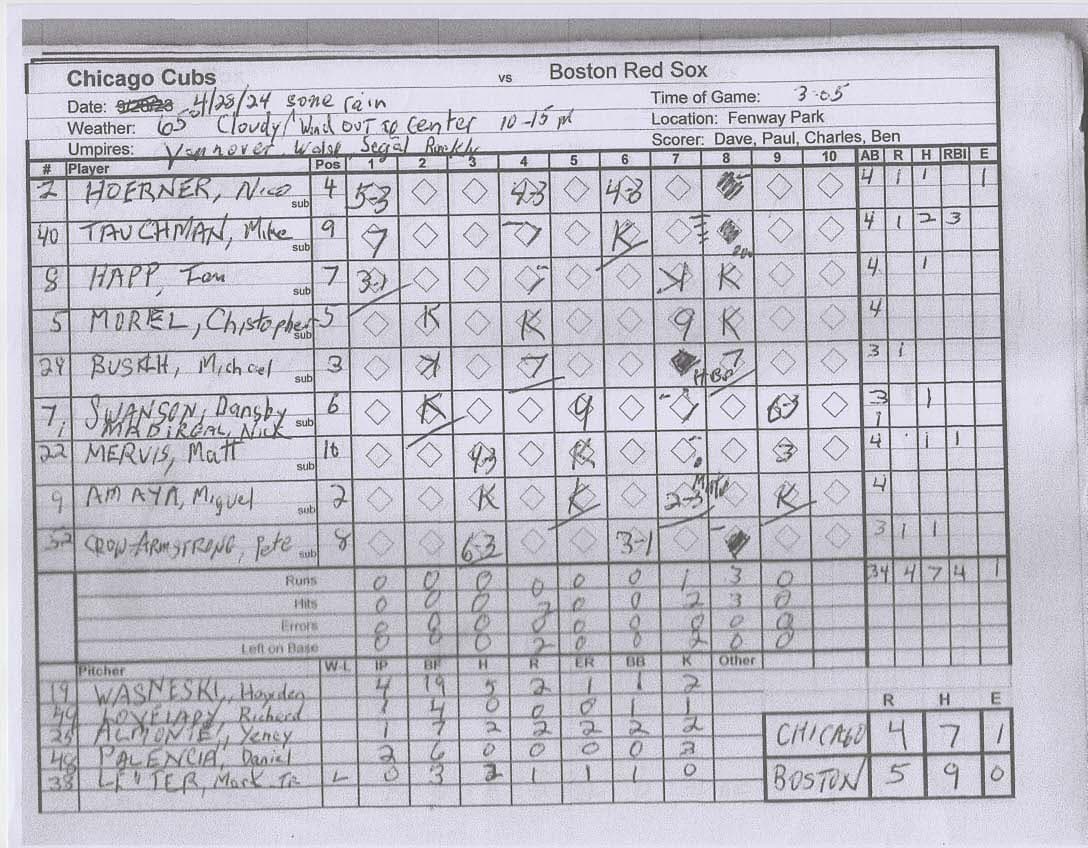 Chicago Cubs vs Boston Red Sox
Date: 9/28/23 4/28/24 some rain Time of Game: 3:05
Weather: 65 Cloudy/Wind out to center 10-15 Location: Fenway Park
Umpires: Vannover, Segal Scorer: Dave, Paul, Charles, Ben
# Player Pos 1 2 3 4 5 6 7 8 9 10 AB R H RBI E
2 HOERNER, Nico sub 4 5-3 4-3 4-3 4 1 1 1
40 TAUCHMAN, Mike sub 9 7 7 K 4 1 2 3
8 HAPP, Ian sub 7 3-1 K K 4 1
5 MOREL, Chistopher sub 5 K K 9 K 4
29 BUSKH, Michael sub 3 K 7 HBP 7 3 1
7 SWANSON, Dansby 6 K 9 6-3 3 1
MADIRGAL, Nick 1
22 MERVIS, Matt sub 10 4-3 K 3 4 1 1
9 AMAYA, Miguel sub 2 K K 2-3 K 4
52 CROW-ARMSTRONG, Pete sub 8 6-3 3-1 3 1 1
Runs 0 0 0 0 0 0 1 3 0 34 4 7 4 1
Hits 0 0 0 2 0 0 2 3 0
Errors 0 0 0 0 0 0 0 0 0
Left on Base 0 0 0 2 0 0 2 0 0
Pitcher W-L IP BF H R ER BB K Other
19 WASNESKI, Hayden 4 19 5 2 1 1 2
49 LOVELADY, Richard 1 4 0 0 0 1 1
25 ALMONTE, Yency 1 7 2 2 2 2 2
48 PALENCIA, Daniel 2 6 0 0 0 0 3
38 LEITER, Mark Jr L 0 3 2 1 1 1 0
R H E
CHICAGO 4 7 1
BOSTON 5 9 0